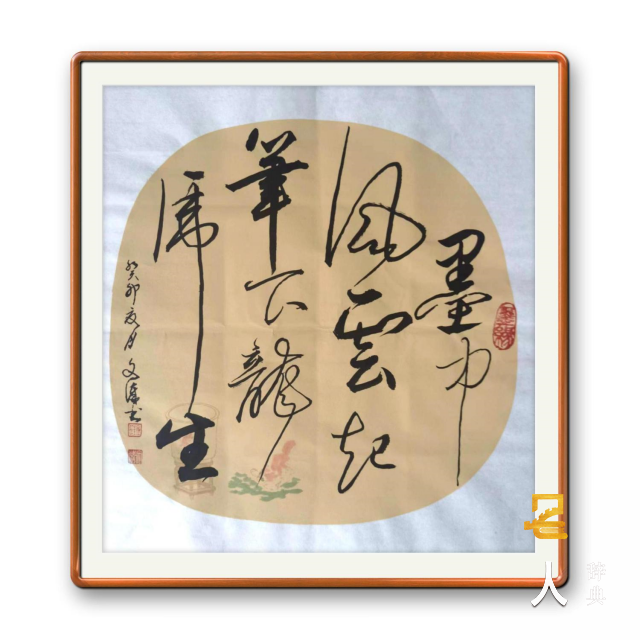 墨中
风雲起
筆下龍
虎生
癸卯夏月文
名人
辞典